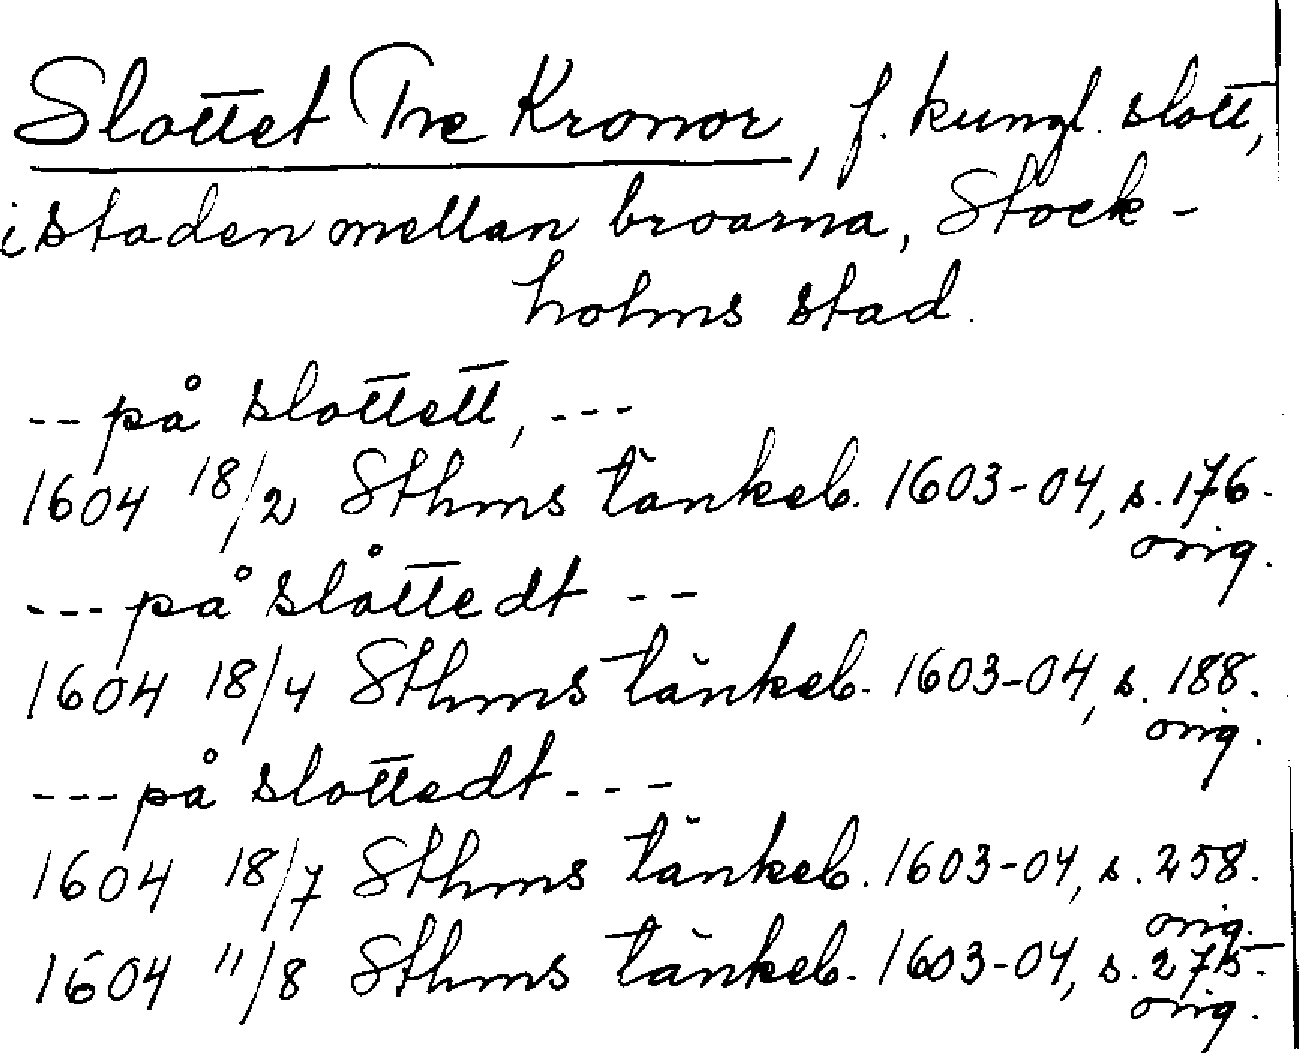 Slottet Tre Kronor, f. kungl. slott,
i staden mellan broarna, Stock-
holms stad.
-- på slottett, ---
1604 18/2 Sthms tänkeb. 1603-04, s. 176.
orig.
--- på slåttedt --
1604 18/4 Sthms tänkeb. 1603-04, s. 188.
orig.
--- på slottedt ---
1604 18/7 Sthms tänkeb. 1603-04, s. 258.
orig.
1604 11/8 Sthms tänkeb. 1603-04, s. 275.
orig.